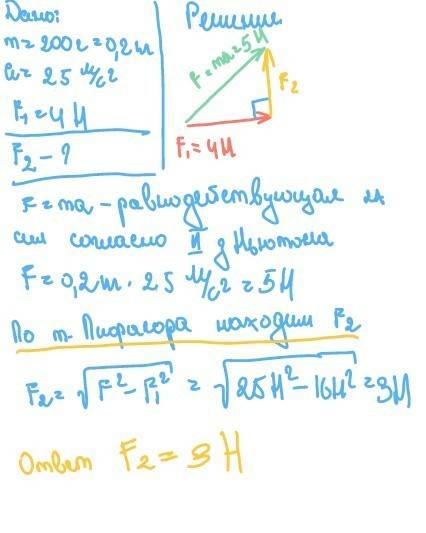 Дано:
m = 200 г = 0,2 кг
a = 25 м/с²
F₁ = 4 Н
F₂ - ?
Решение
F = ma = 5 Н
F₂
F₁ = 4 Н
F = ma - равнодействующая
сил согласно II з Ньютона
F = 0,2 кг · 25 м/с² = 5 Н
По т. Пифагора находим F₂
F₂ = √F² - F₁² = √25Н² - 16Н² = 3Н
Ответ F₂ = 3 Н